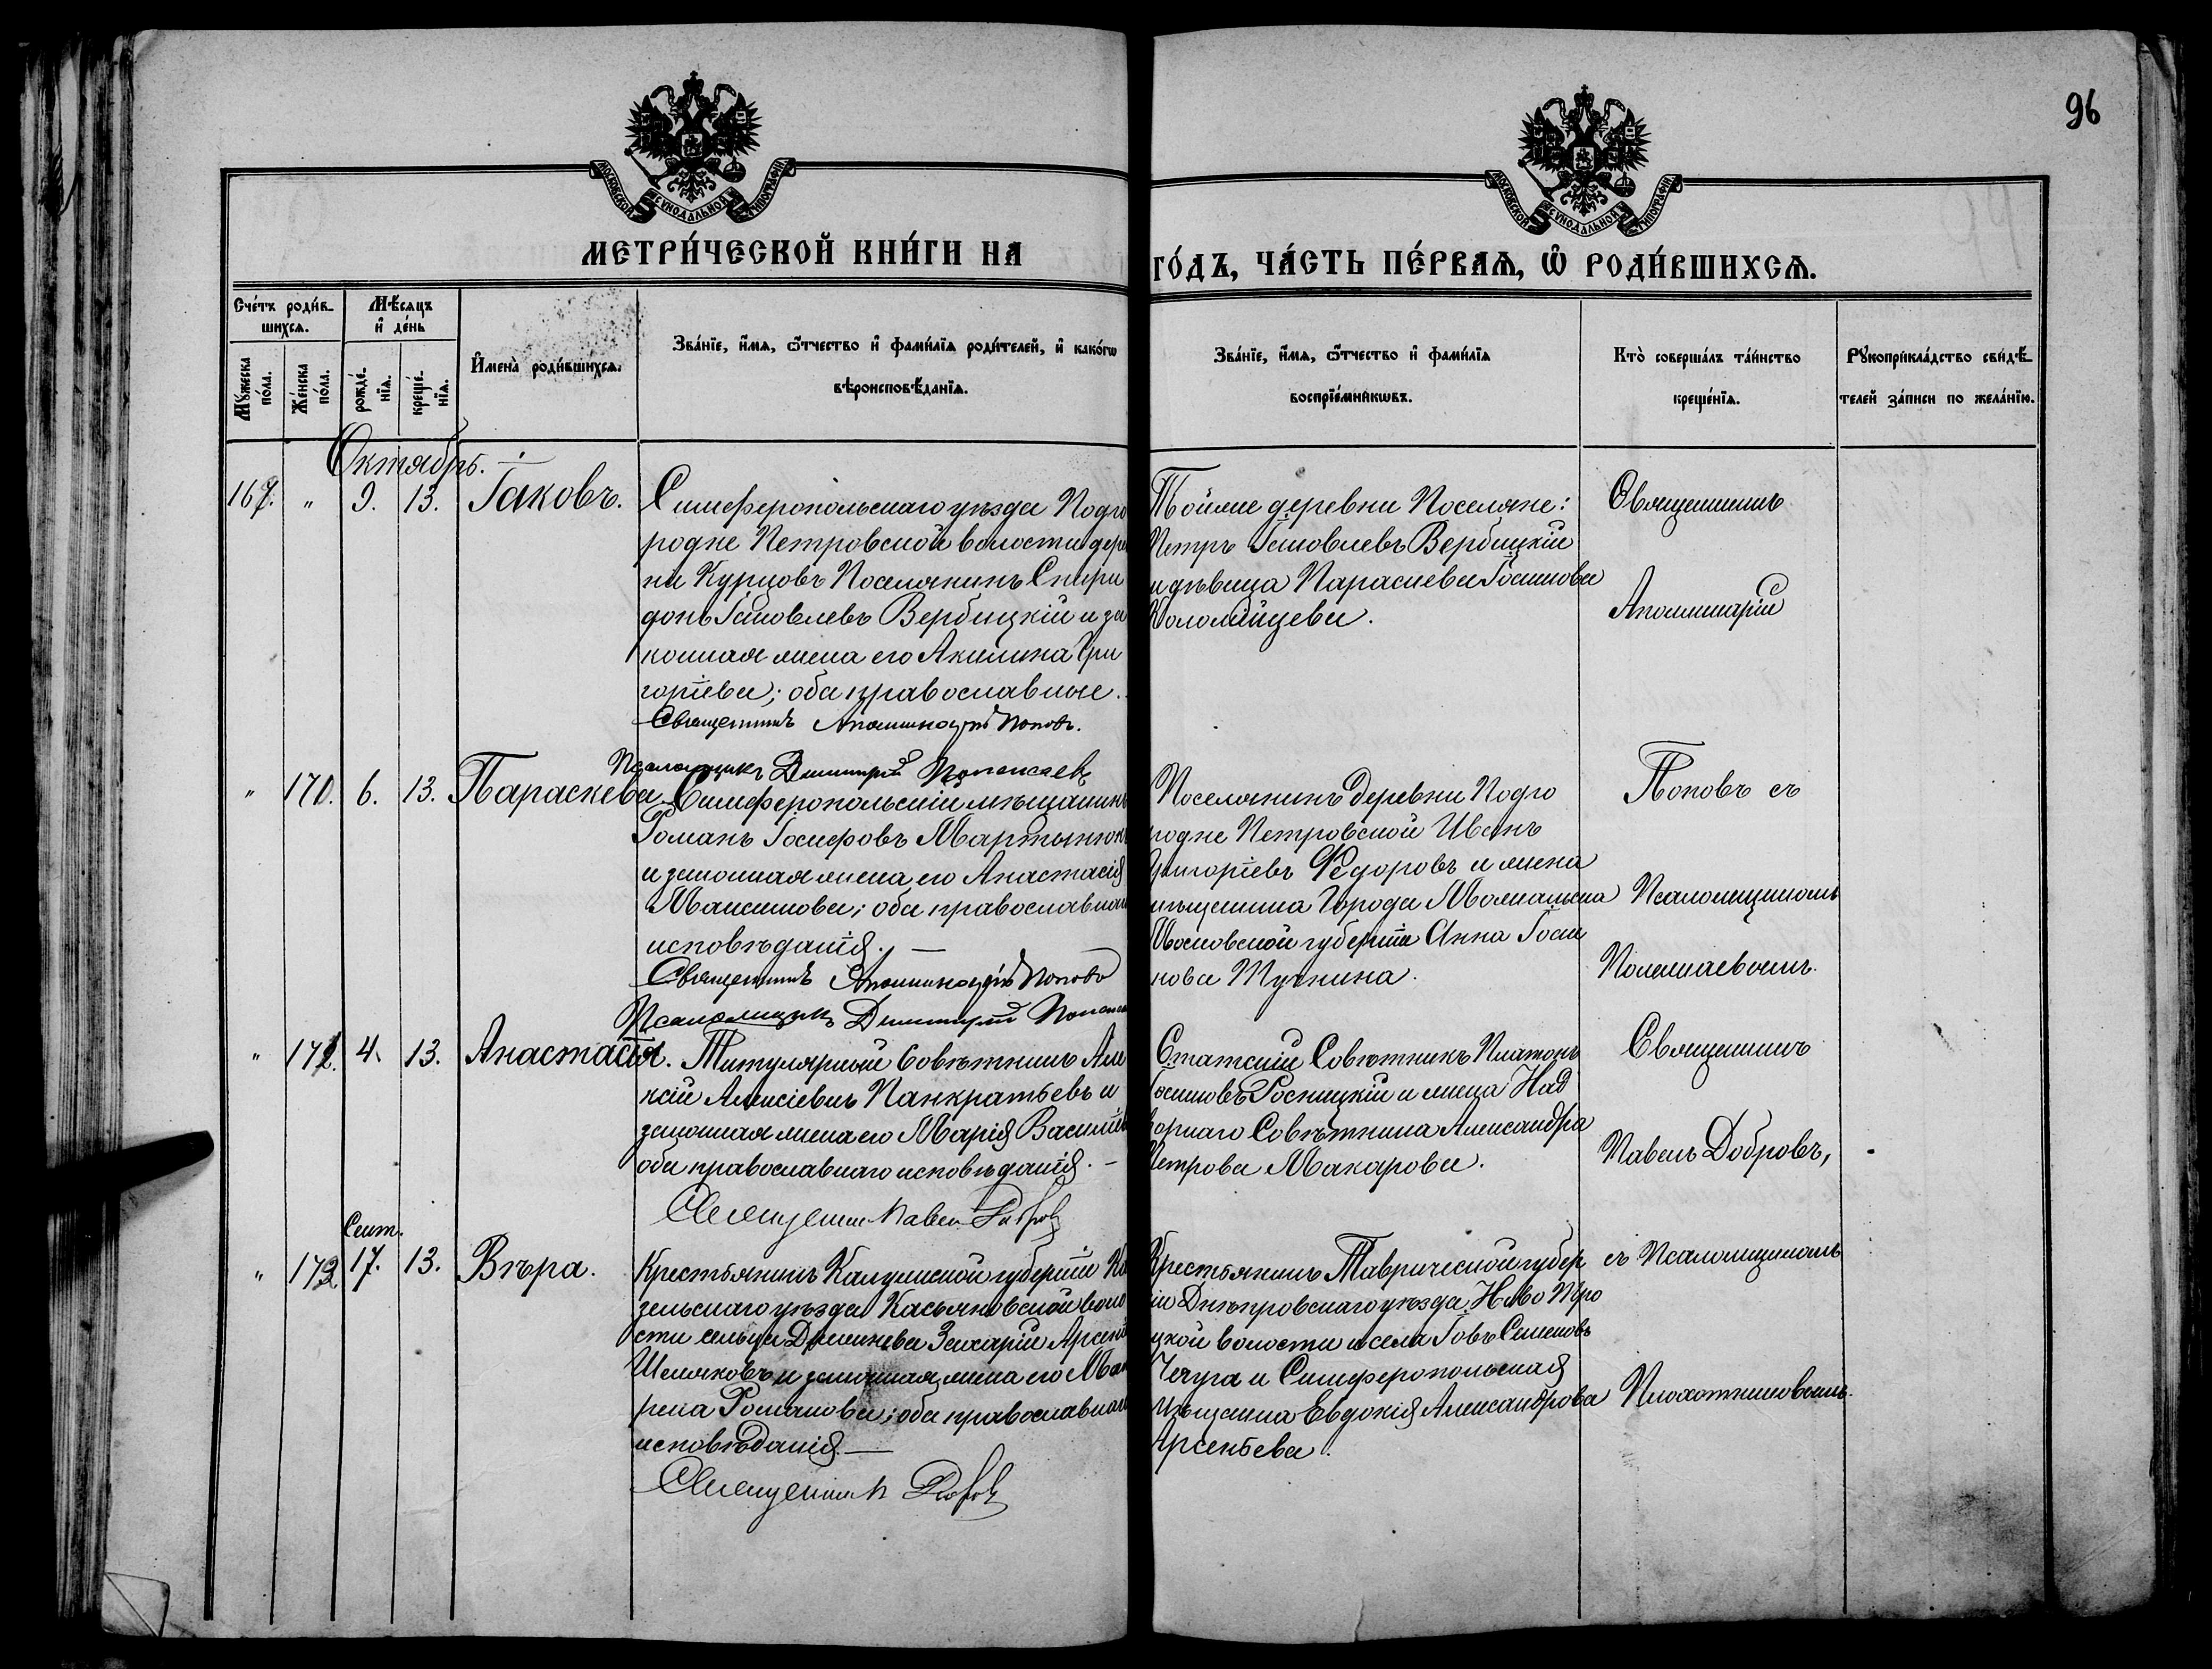 96
МОСКОВСКОЙ СУНОДАЛЬНОЙ ТИПОГРАФІИ
МОСКОВСКОЙ СУНОДАЛЬНОЙ ТИПОГРАФІИ
МЕТРИ́ЧЕСКОЙ КНИ́ГИ НА
ГО́ДЪ, ЧА́СТЬ ПЕ́РВАѦ, Ѡ҆ РОДИ́ВШИХСѦ.
Сче́тъ роди́в-
шихсѧ.
Мѣ́сѧцъ
и҆ де́нь
Мꙋ́жеска
по́ла.
Же́нска
по́ла.
рожде́-
нїѧ.
креще́-
нїѧ.
И҆мена̀ роди́вшихсѧ.
Зва́нїе, и҆́мѧ, ѻ҆́тчество и҆ фами́лїѧ роди́телей, и҆ како́гѡ
вѣроисповѣ́данїѧ.
Зва́нїе, и҆́мѧ, ѻ҆́тчество и҆ фами́лїѧ
воспрїе́мникѡвъ.
Кто̀ соверша́лъ та́инство
креще́нїѧ.
Рꙋкоприкла́дство свидѣ́-
телей за́писи по жела́нїю.
Октябрь.
169. " 9. 13. Іаковъ.
Симферопольскаго уѣзда Подго
родне Петровской волости дере
ни Курцовъ Поселянинъ Спири
донъ Іаковлевъ Вербицкій и за
конная жена его Акилина Гри
горіева; оба православные.
Священникъ Аполлинарій Поповъ.
Псаломщикъ Димитрій
Тойже деревни Поселяне:
Петръ Іаковлевъ Вербицкій
и дѣвица Параскева Іоакимова
Коломійцева.
Священникъ
Аполлинарій
" 170. 6. 13. Параскева
Симферопольскій мѣщанинъ
Романъ Іосифовъ Мартынюкъ
и законная жена его Анастасія
Максимова; оба православнаго
исповѣданія. —
Священникъ Аполлинарій Поповъ
Псаломщикъ Димитрій
Поселянинъ деревни Подго
родне Петровской Иванъ
Григоріевъ Ѳедоровъ и жена
мѣщанина Города
Московской губерніи Анна
нова
Поповъ съ
Псаломщикомъ
" 171. 4. 13. Анастасія.
Титулярный Совѣтникъ Але
ксій Алексіевичъ Панкратьевъ и
законная жена его Марія Василіева
оба православнаго исповѣданія. —
Священникъ Павелъ Добровъ
Статскій Совѣтникъ Платонъ
и жена Над
ворнаго Совѣтника Александра
Петрова Макарова.
Священникъ
Павелъ Добровъ,
Сент.
" 172. 17. 13. Вѣра.
Крестьянинъ Калужской губерніи Ко
зельскаго уѣзда Касьяновской воло
сти сельца Захарій Арсеніевъ
и законная жена его Мат
рена Романова; оба православнаго
исповѣданія. —
Священникъ П. Добровъ
Крестьянинъ Таврической губер
ніи Днѣпровскаго уѣзда, Ново Тро
цкой волости и села Іовъ Семеновъ
Чечуга и Симферопольская
мѣщанка Евдокія Александрова
Арсентьева.
съ Псаломщикомъ
Плохотниковымъ.